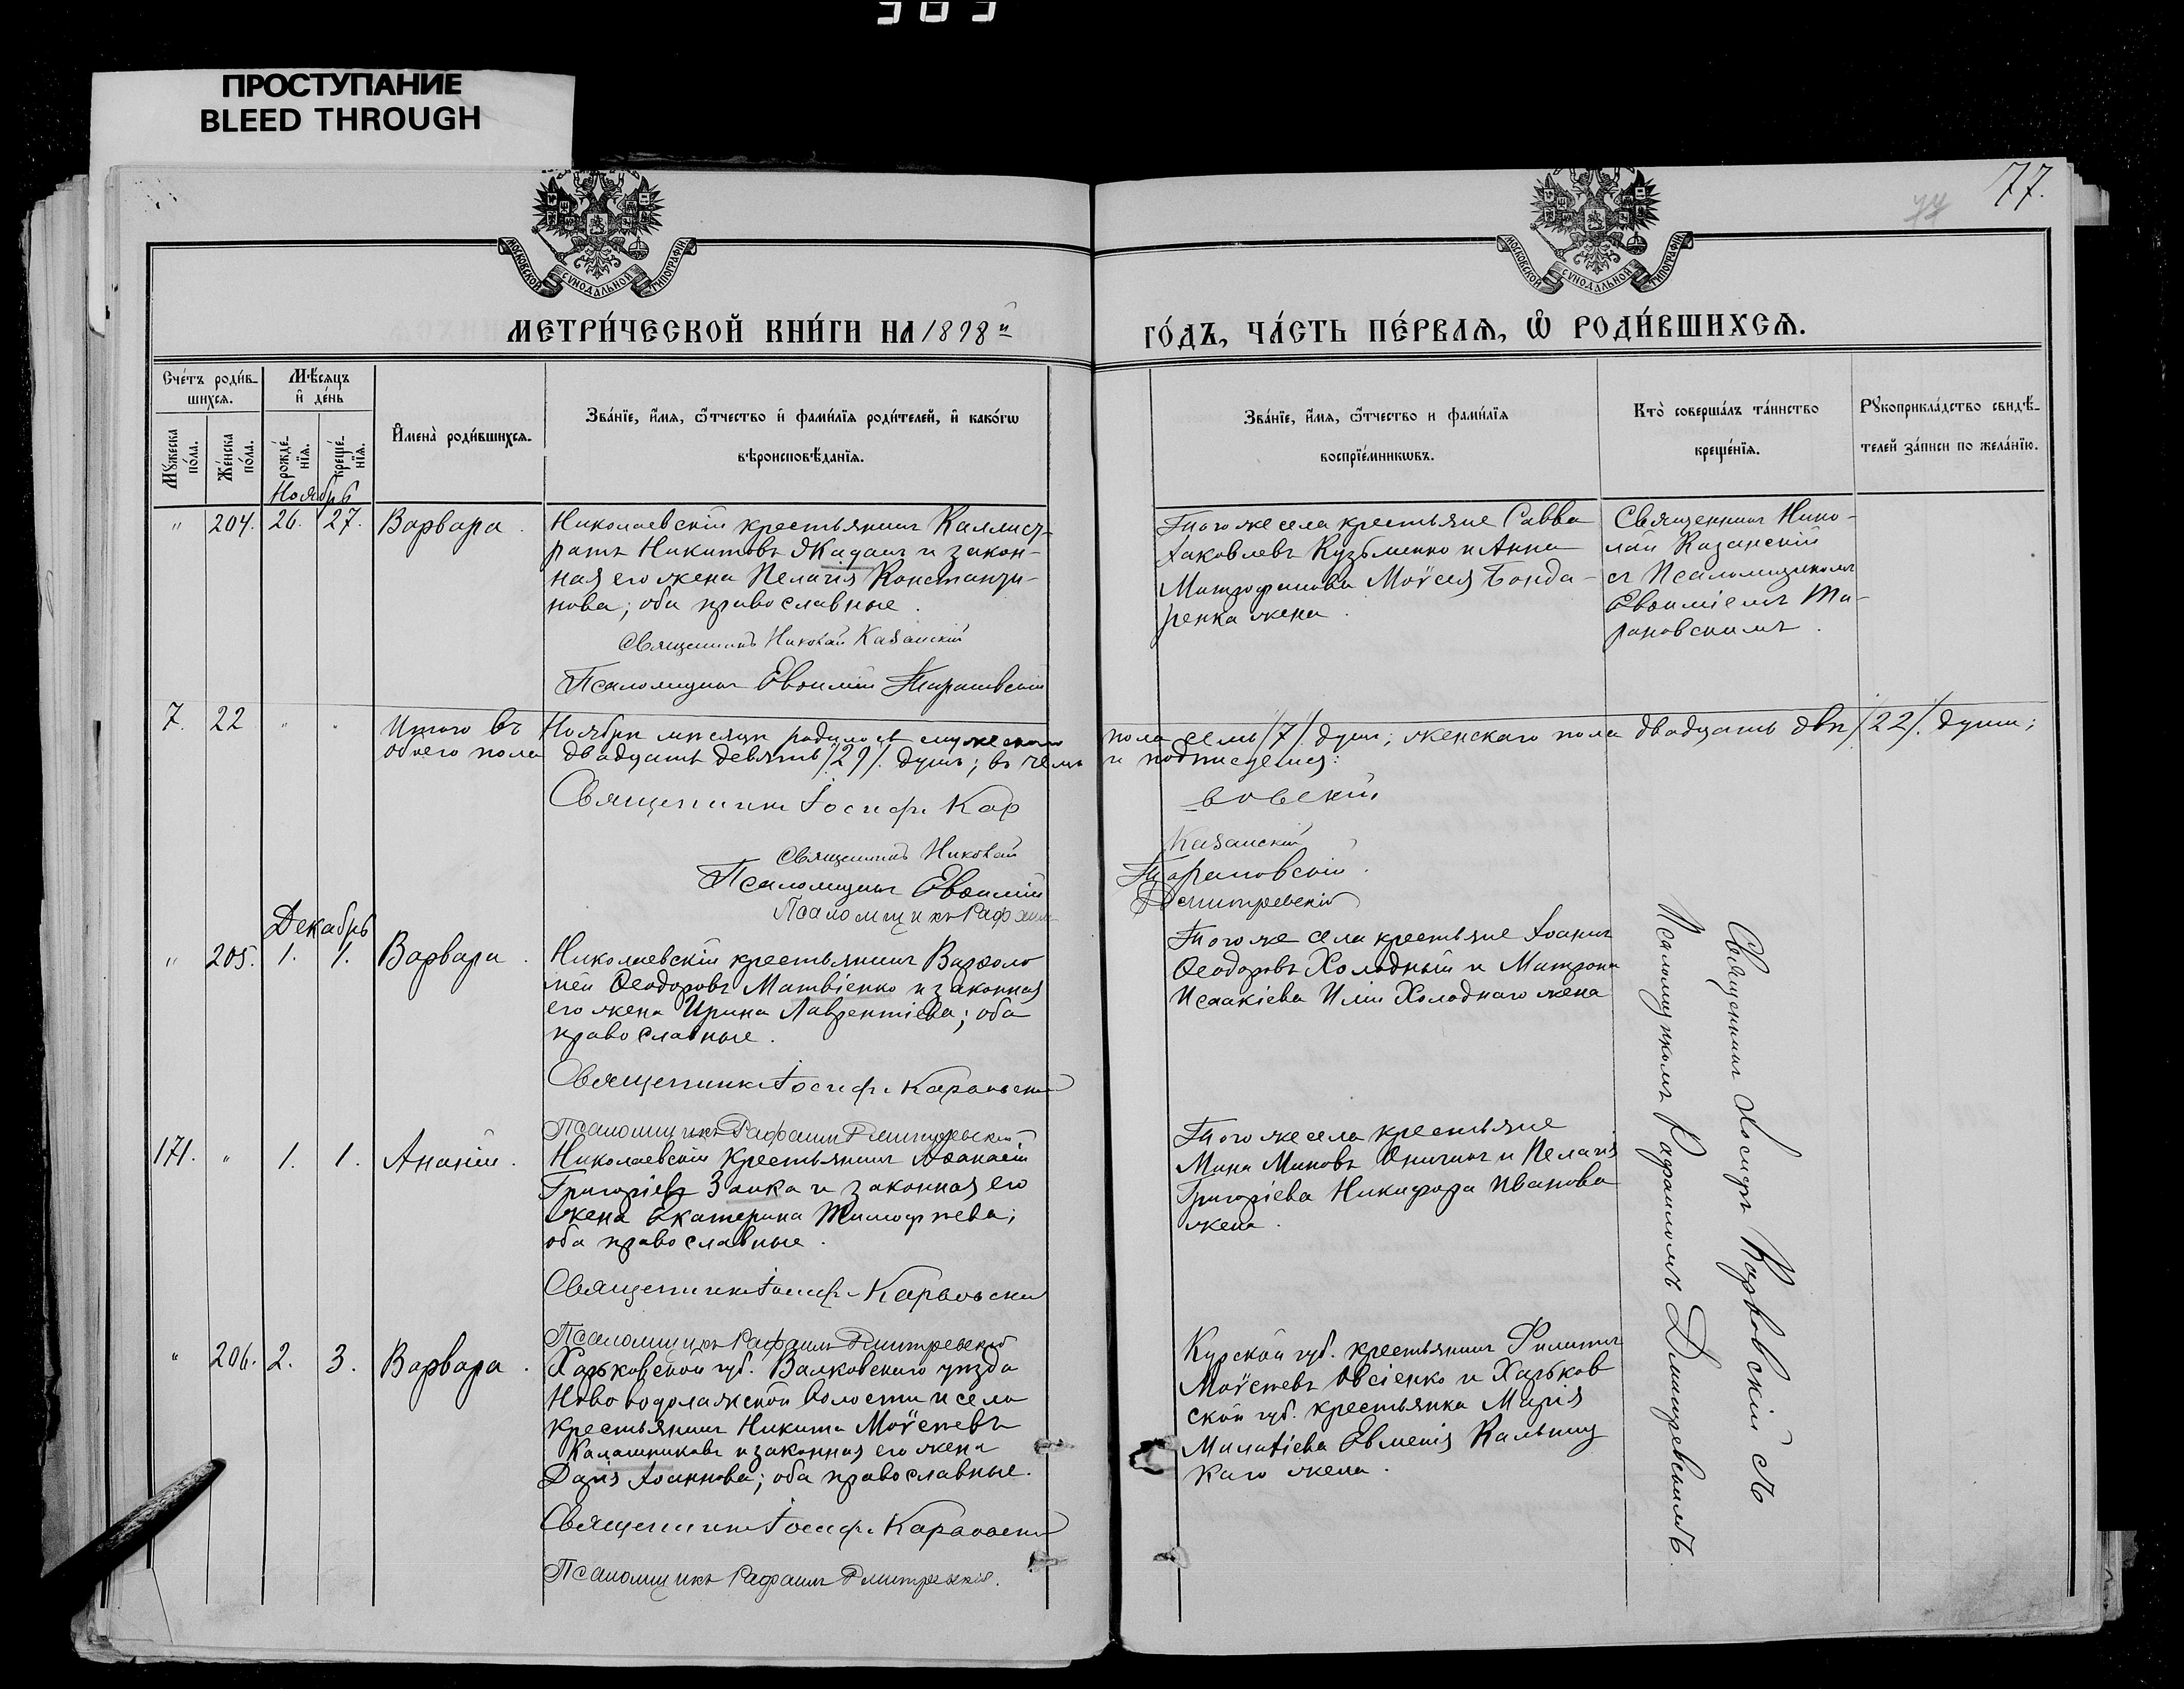 ПРОСТУПАНИЕ
BLEED THROUGH
77.
МОСКОВСКОЙ СѴНОДАЛЬНОЙ ТИПОГРАФІИ
МОСКОВСКОЙ СѴНОДАЛЬНОЙ ТИПОГРАФІИ
МЕТРИ́ЧЕСКОЙ КНИ́ГИ НА 1898 й
ГО́ДЪ, ЧА́СТЬ ПЕ́РВАѦ, Ѽ РОДИ́ВШИХСѦ.
Сче́тъ роди́в-
шихсѧ.
Мѣ́сѧцъ
и҆ де́нь
Мꙋ́жеска
по́ла.
Же́нска
по́ла.
рожде́-
нїѧ.
креще́-
нїѧ.
И҆мена̀ роди́вшихсѧ.
Зва́нїе, и҆́мѧ, ѻ҆́тчество и҆ фами́лїѧ роди́телей, и҆ како́гѡ
вѣроисповѣ́данїѧ.
Зва́нїе, и҆́мѧ, ѻ҆́тчество и фами́лїѧ
воспрїе́мникѡвъ.
Кто̀ соверша́лъ та́инство
креще́нїѧ.
Рꙋкоприкла́дство свидѣ́-
телей за́писи по жела́нїю.
Ноябрь
" 204. 26. 27. Варвара.
Николаевскій крестьянинъ Каллист-
ратъ Никитовъ Жаданъ и закон-
ная его жена Пелагія Константи-
нова; оба православные.
Священникъ Николай Казанскій
Псаломщикъ Евѳимій Тарановскій
Того же села крестьяне Савва
Іаковлевъ Кузьменко и Анна
Митрофанова Моѵсея Бонда-
ренка жена.
Священникъ Нико-
лай Казанскій
съ Псаломщикомъ
Евѳиміемъ Та-
рановскимъ.
7. 22 " " Итого въ Ноябрѣ мѣсяцѣ родилось мужескаго пола семь /7/ душъ; женскаго пола двадцать двѣ /22/ души;
обоего пола двадцать девять /29/ душъ; въ чемъ и подписуемся:
Священникъ Іосифъ Карвовскій
Священникъ Николай Казанскій
Псаломщикъ Евѳимій Тарановскій.
Псаломщикъ Рафаилъ Дмитревскій
Декабрь
" 205. 1. 1. Варвара.
Николаевскій крестьянинъ Варѳоло
мей Ѳеодоровъ Матвіенко и законная
его жена Ирина Лаврентіева; оба
православные.
Священникъ Іосифъ Карвовскій
Псаломщикъ Рафаилъ Дмитревскій
Того же села крестьяне Іоаннъ
Ѳеодоровъ Холодный и Матрона
Исаакіева Иліи Холоднаго жена
Священникъ Іосифъ Карвовскій съ
Псаломщикомъ Рафаиломъ Дмитревскимъ.
171. " 1. 1. Ананій.
Николаевскій крестьянинъ Аѳанасій
Григоріевъ Заика и законная его
жена Екатерина Тимоѳѣева;
оба православные.
Священникъ Іосифъ Карвовскій
Псаломщикъ Рафаилъ Дмитревскій
Того же села крестьяне
Мина Миновъ и Пелагія
Григоріева Никифора Иванова
жена.
" 206. 2. 3. Варвара.
Харьковской губ. Валковскаго уѣзда
Ново водолажской волости и села
крестьянинъ Никита Моѵсеевъ
Калашниковъ и законная его жена
Дарія Іоаннова; оба православные.
Священникъ Іосифъ Карвовскій
Псаломщикъ Рафаилъ Дмитревскій.
Курской губ. крестьянинъ Филиппъ
Моѵсеевъ Овсіенко и Харьков
ской губ. крестьянка Марія
Евменія
каго жена.